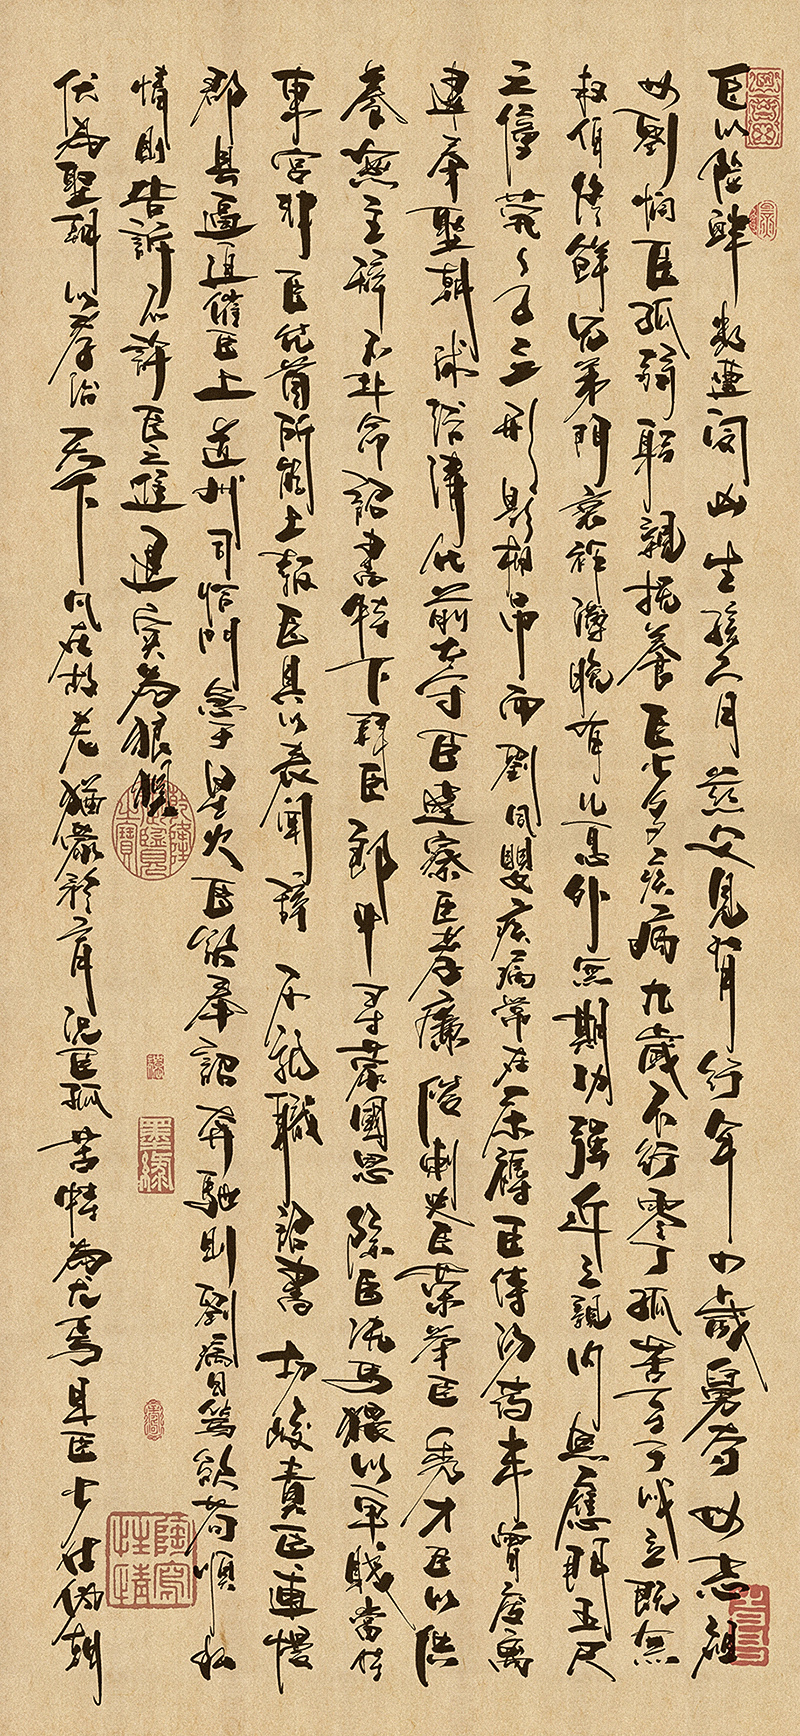 臣以險衅夙遭閔凶生孩六月慈父見背行年四歲舅奪母志祖
母劉憫臣孤弱躬親撫養臣少多疾病九歲不行零丁孤苦至于成立既無
叔伯終鮮兄弟門衰祚薄晚有兒息外無期功強近之親內無應門五尺
之僮煢々孑立形影相吊而劉夙嬰疾病常在床褥臣侍湯藥未曾廢離
逮奉聖朝沐浴清化前太守臣逵察臣孝廉後刺史臣榮舉臣秀才臣以供
養無主辭不赴命詔書特下拜臣郎中尋蒙國恩除臣洗馬猥以微賤當侍
東宮非臣隕首所能上報臣具以表聞辭不就職詔書切峻責臣逋慢
郡縣逼迫催臣上道州司臨門急于星火臣欲奉詔奔馳則劉病日篤欲苟順私
情則告訴不許臣之進退實為狼狽
伏為聖朝以孝治天下凡在故老猶蒙矜育況臣孤苦特為尤焉且臣少仕偽朝
乾隆御覽之寶
墨緣
陶寫性情